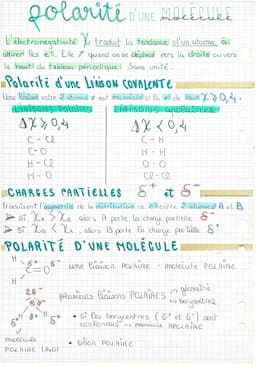 polarité D'UNE MOLÉCULE
L'électronégativité χ traduit la tendance d'un atome à
attirer les e⁻. Elle ↗ quand on se déplace vers la droite ou vers
le haut du tableau périodique. Sans unité.
Polarité d'une LIAISON COVALENTE
Une liaison entre 2 atomes ≠ est polarisée si la ≠ de χ ⩾ 0,4.
LIAISONS POLAIRES LIAISONS APOLAIRES
Δχ ⩾ 0,4 Δχ < 0,4
C - Cl C - H
C - O H - H
H - Cl O - O
H - O Cl - Cl
CHARGES PARTIELLES δ⁺ et δ⁻
traduisent l'asymétrie de la distribution de e⁻ entre 2 atomes A et B.
si χA > χB, alors A porte la charge partielle δ⁻
si χA < χB, alors A porte la charge partielle δ⁺
POLARITÉ D'UNE MOLÉCULE
H
C = O
H
une liaison POLAIRE : molécule POLAIRE
plusieurs liaisons POLAIRES
géométrie
barycentres
2δ⁻
O
H H
δ⁺ δ⁺
• si les barycentres (δ⁺ et δ⁻) sont
confondus → molécule APOLAIRE
molécule
POLAIRE (H₂O)
• sinon POLAIRE